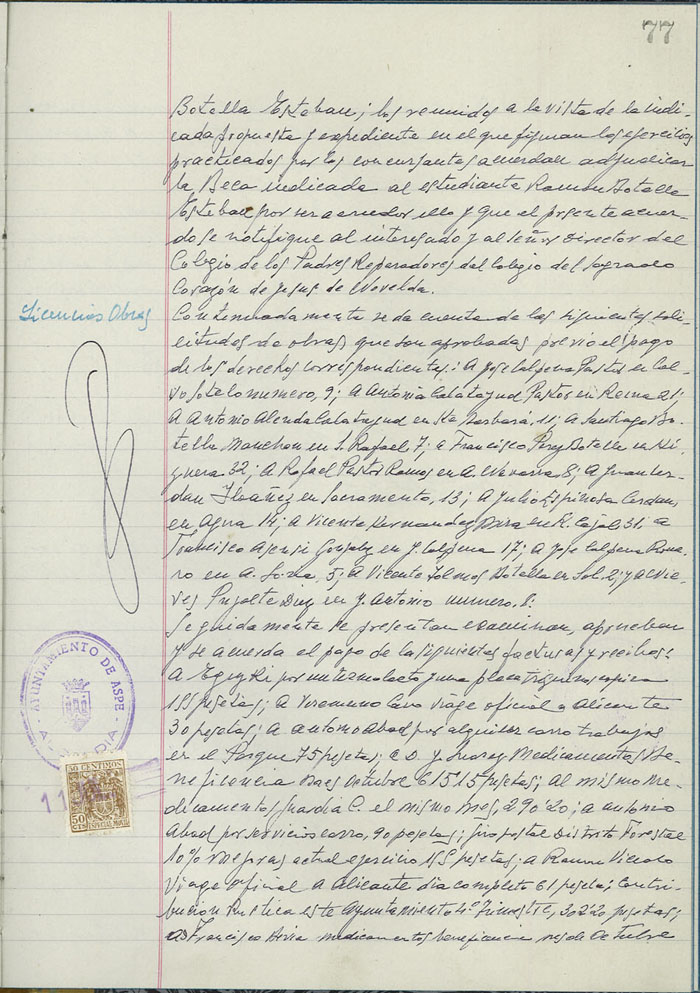 77
Botella Esteban; los reunidos a la vista de la indi-
cada propuesta y expediente en el que figuran los ejercicios
practicados por los concursantes acuerdan adjudicar
la Beca indicada al estudiante Ramon Botella
Esteban por ser acreedor ello y que el presente acuer-
do se notifique al interesado y al señor Director del
Colegio de los Padres Reparadores del Colegio del Sagrado
Corazón de Jesus de Novelda.
Licencias Obras
Continuadamente se da cuenta de las siguientes soli-
citudes de obras que son aprobadas previo el pago
de los derechos correspondientes: A Jose Calpena Pastor en Cal-
vo Sotelo numero, 9; A Antonia Calatayud Pastor en Reina 21;
A Antonio Alenda Calatayud en Sta Barbara, 11; A Santiago Bo-
tella Manchon en S. Rafael 7; a Francisco Perez Botella en
32; A Rafael Pastor Ramos en A. Navarra, 8; A Juan Cer-
dan Ibañez en Sacramento, 13; A Julio Espinosa Cerdan,
en Agua 14; A Vicente Hernandez en R. Cajal 31; a
Francisco Asensi Gonzalez en J. Calpena 17; A Jose Calpena Rome-
ro en A. 5; A Vicente Botella en Sol. 2; y a
Pujalte Diez en S. Antonio numero, 8:
Seguidamente se presentan examinan, aprueban
y se acuerda el pago de las siguientes facturas y recibos:
A por un termolacto y una
155 pesetas; A viage oficial a Alicante
30 pesetas; A Antonio Abad por alquiler carro trabajos
en el Parque 75 pesetas; a D. Medicamentos Be-
neficencia mes Octubre 615'15 pesetas; Al mismo me-
dicamentos Guardia C. el mismo mes, 290'20; a Antonio
Abad por servicios carro, 90 pesetas; giro postal Distrito Forestal
10% mejoras actual ejercicio 155 pesetas; a Ramon
Viage oficial a Alicante dia completo 61 peseta; Contri-
bución Rustica este Ayuntamiento 4º Trimestre, 302'20 pesetas;
a Francisco medicamentos beneficencia mes de Octubre
AYUNTAMIENTO DE ASPE
ALCALDIA
50 CENTIMOS
50
CTS
ESPECIAL MOVIL